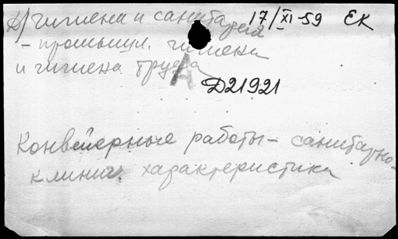 к/ гигиена и санитария 17/XI-59 ЕК
- промышл. гигиена
и гигиена труда
А
Д21921
Конвейерные работы - санитарно-
клинич. характеристика